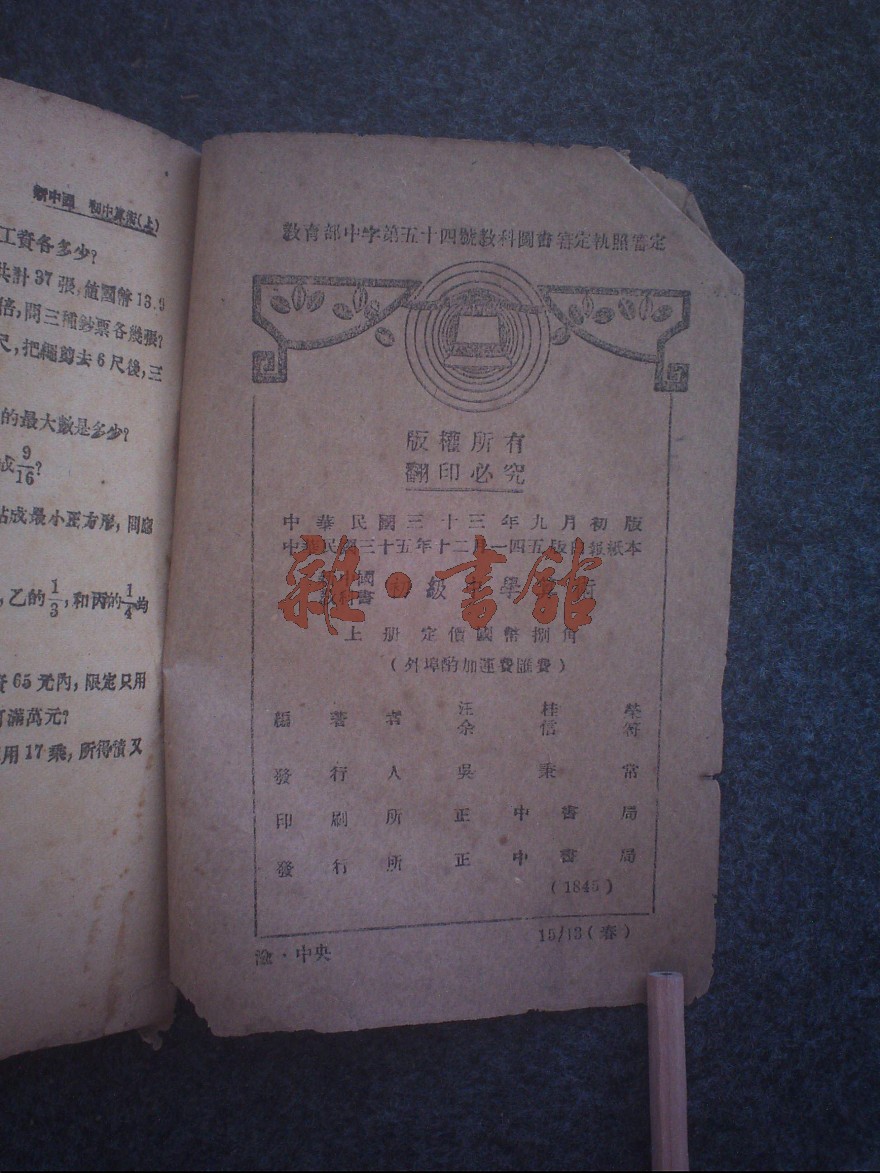 新中國 初中算術(上)
工資各多少?
共計 37 張, 值國幣 13.9
倍, 問三種鈔票各幾張?
尺, 把繩剪去 6 尺後, 三
的最大數是多少?
成 9/16?
成最小正方形, 問應
, 乙的 1/3, 和丙的 1/4 均
資 65 元內, 限定只用
可滿萬元?
用 17 乘, 所得積又
教育部中字第五十四號教科圖書審定執照審定
版權所有
翻印必究
中華民國三十三年九月初版
中華民國三十五年十二月一四五版白報紙本
新中國教科書 初級中學算術
雜·書館
上册 定價國幣捌角
(外埠酌加運費匯費)
編著者 汪桂榮
余信符
發行人 吳秉常
印刷所 正中書局
發行所 正中書局
(1845)
15/13(春)
渝·中央